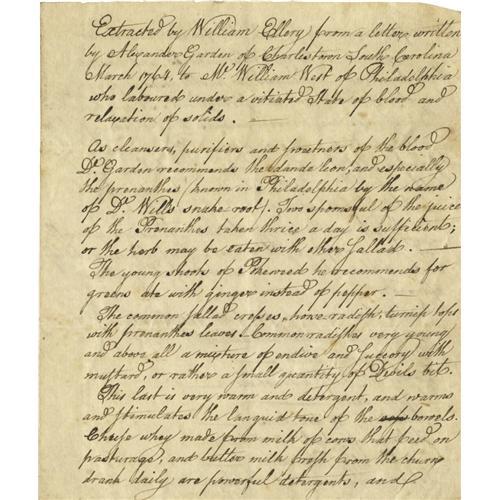 Extracted by William Ellery from a letter written
by Alexander Garden of Charlestown South Carolina
March 1764, to Mr. William West of Philadelphia
who laboured under a vitiated State of blood and
relaxation of solids. —
As cleansers, purifiers and sweetners of the blood
Dr. Garden recommends the dandeleon, and especially
the prenanthes (known in Philadelphia by the name
of Dr. Wills snake root). Two spoonsful of the juice
of the Prenanthes taken thrice a day is sufficient;
or the herb may be eaten with other sallad. —
The young shoots of Pokeweed he recommends for
greens ate with ginger instead of pepper. —
The common sallad cresses, horse radish, turnip tops
with prenanthes leaves — Common radishes very young
and above all a mixture of endive and succory with
mustard, or rather a small quantity of Devils bit.
This last is very warm and detergent, and warms
and stimulates the languid tone of the bowels.
Cheese whey made from milk of cows that feed on
pasturage, and butter milk fresh from the churn
drank daily are powerful detergents, and